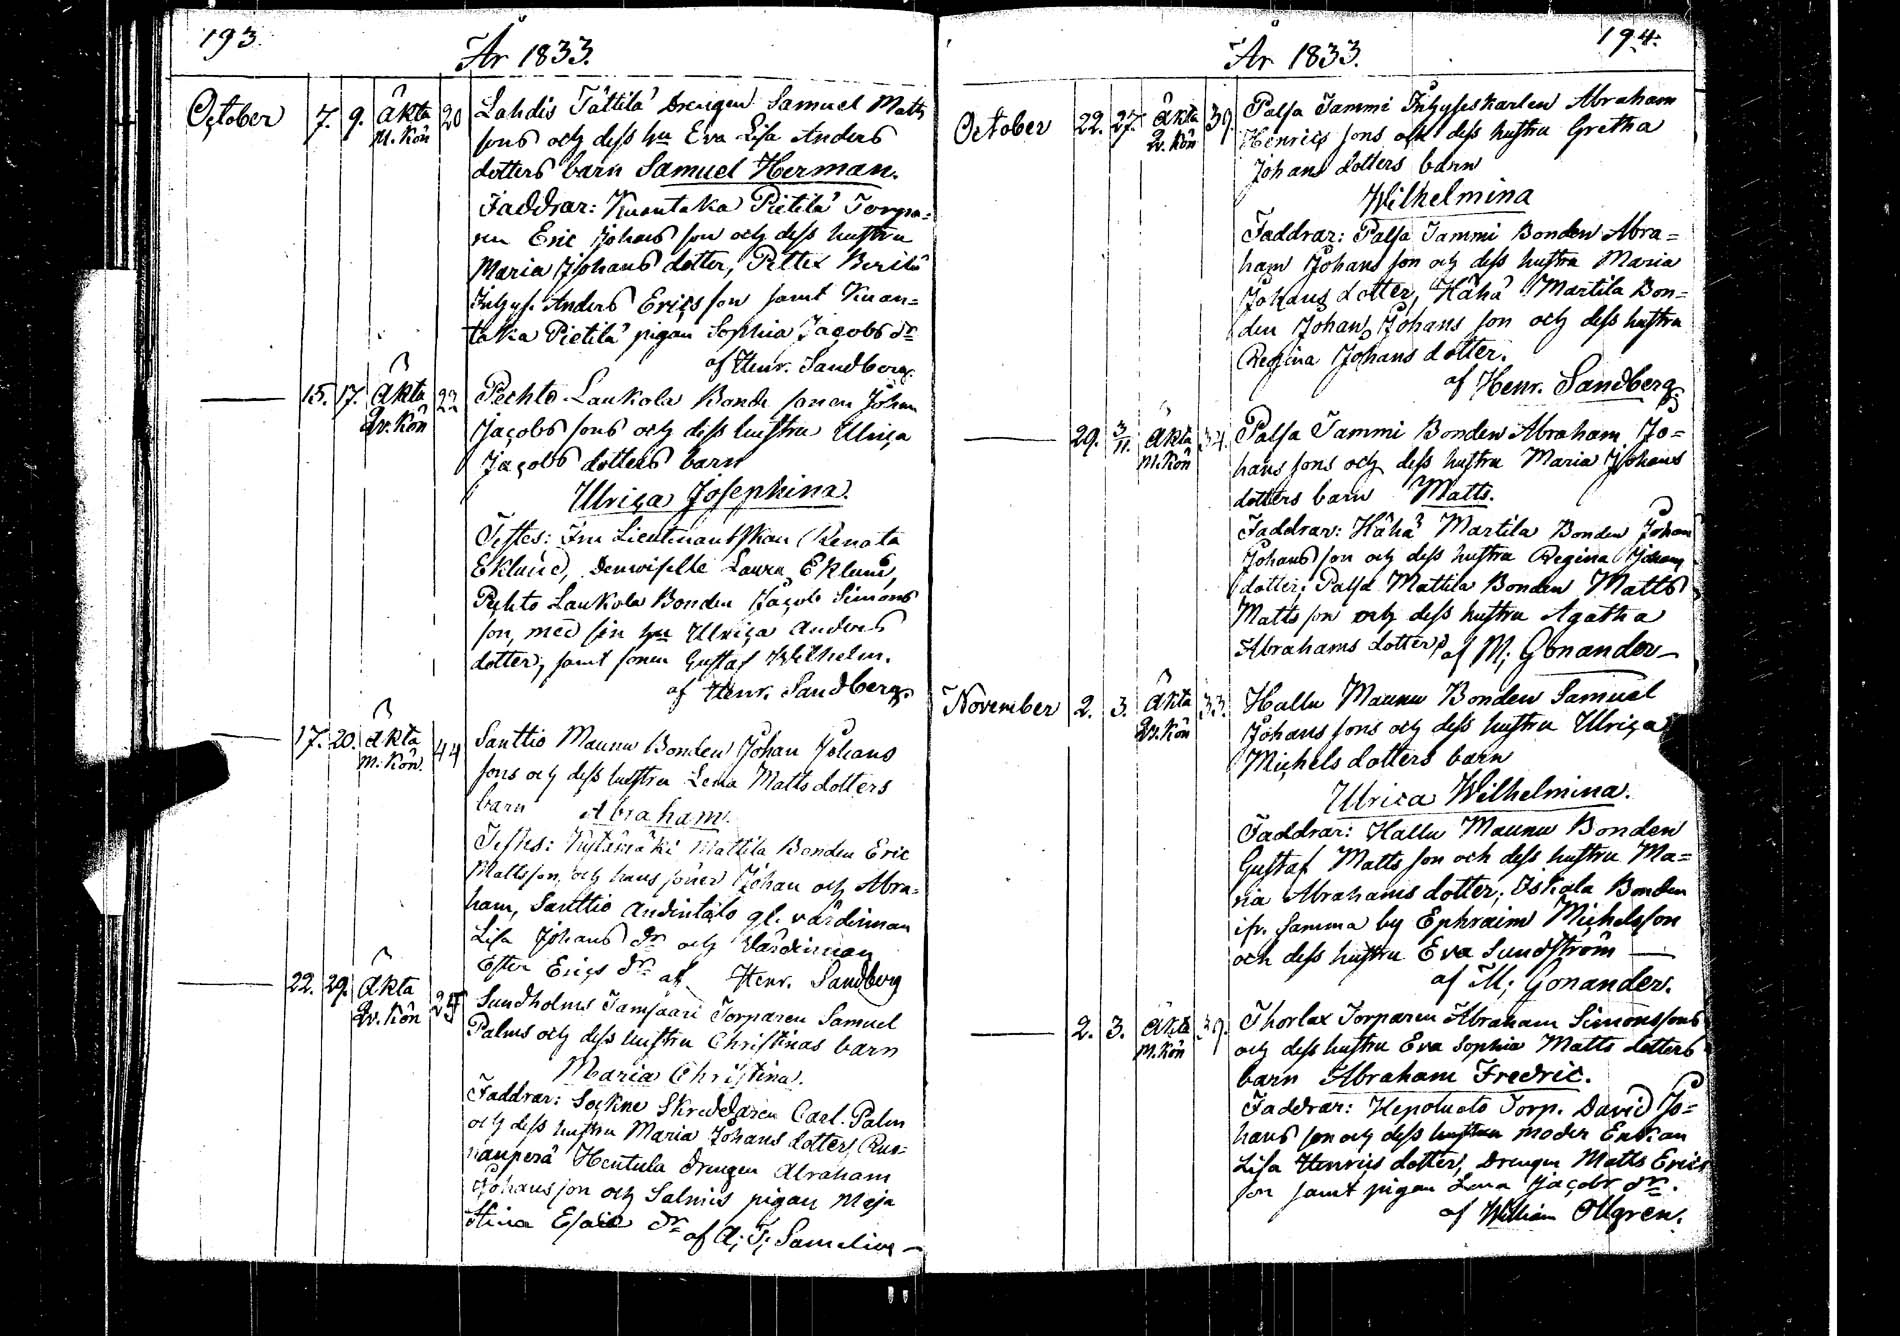 193.
År 1833.
October 7. 9. äkta 20 Lahdis Tättilä Drengen Samuel Matts
M. Kön sons och dess hu Eva Lisa Anders
dotters barn Samuel Herman.
Faddrar: Kuontaka Pietilä Torpa=
ren Eric Johans son och dess hustru
Maria Johans dotter, Peltex Berilä
Inhys. Anders Erics son samt Kuan=
taka Pietilä pigan Sophia Jacobs dr
af Henr. Sandberg.
15. 17. äkta 22 Pechto Laukola Bonde sonen Johan
Qv. Kön Jacobs sons och dess hustru Ulrica
Jacobs dotters barn
Ulrica Josephina.
Testes: Fru Lieutenantskan Renata
Eklund, Demoiselle Laura Eklund,
Pechto Laukola Bonden Jacob Simons
son, med sin hu Ulrica Anders
dotter, samt sonen Gustaf Wilhelm.
af Henr. Sandberg.
17. 20. äkta 44 Santtio Maunu Bonden Johan Johans
M. Kön. sons och dess hustru Lena Matts dotters
barn Abraham.
Testes: Kytämäki Mattila Bonden Eric
Mattsson, och hans söner Johan och Abra=
ham, Santtio Andintalo gl. värdinnan
Lisa Johans dr och Värdinnan
Ester Erics dr af Henr. Sandberg
22. 29. äkta 24 Sundholms Tamsaari Torparen Samuel
Qv. Kön Palms och dess hustru Christinas barn
Maria Christina.
Faddrar: Sockne Skreddaren Carl Palm
och dess hustru Maria Johans dotter, Ruo=
nanperä Hentula drengen Abraham
Johans son och Salmis pigan Maja
Stina Esaie dr af A. F. Samelius
194.
År 1833.
October 22. 27. äkta 39. Palsa Tammi Inhyseskarlen Abraham
Qv. Kön Henrics sons och dess hustru Gretha
Johans dotters barn
Wilhelmina
Faddrar: Palsa Tammi Bonden Abra=
ham Johans son och dess hustru Maria
Johans dotter, Hähä Martila Bon=
den Johan Johans son och dess hustru
Regina Johans dotter.
af Henr. Sandberg.
29. 3/11. äkta 34. Palsa Tammi Bonden Abraham Jo=
M. Kön hans sons och dess hustru Maria Johans
dotters barn Matts.
Faddrar: Hähä Martila Bonden Johan
Johans son och dess hustru Regina Johans
dotter; Palsa Mattila Bonden Matts
Matts son och dess hustru Agatha
Abrahams dotter, af M; Gonander
November 2. 3. äkta 33. Hallu Maunu Bonden Samuel
Qv. Kön Johans sons och dess hustru Ulrica
Michels dotters barn
Ulrica Wilhelmina.
Faddrar: Hallu Maunu Bonden
Gustaf Matts son och dess hustru Ma=
ria Abrahams dotter; Iskala Bonden
ifr. samma by Ephraim Michelsson
och dess hustru Eva Sundström
af M; Gonander.
2. 3. äkta 39. Thorlax Torparen Abraham Simonssons
M. Kön och dess hustru Eva Sophia Matts dotters
barn Abraham Fredric.
Faddrar: Kepoluoto Torp. David Jo=
hans son och dess hustru moder Enkan
Lisa Henrics dotter, Drengen Matts Erics
son samt pigan Lena Jacobs dr.
af William Ollgren.